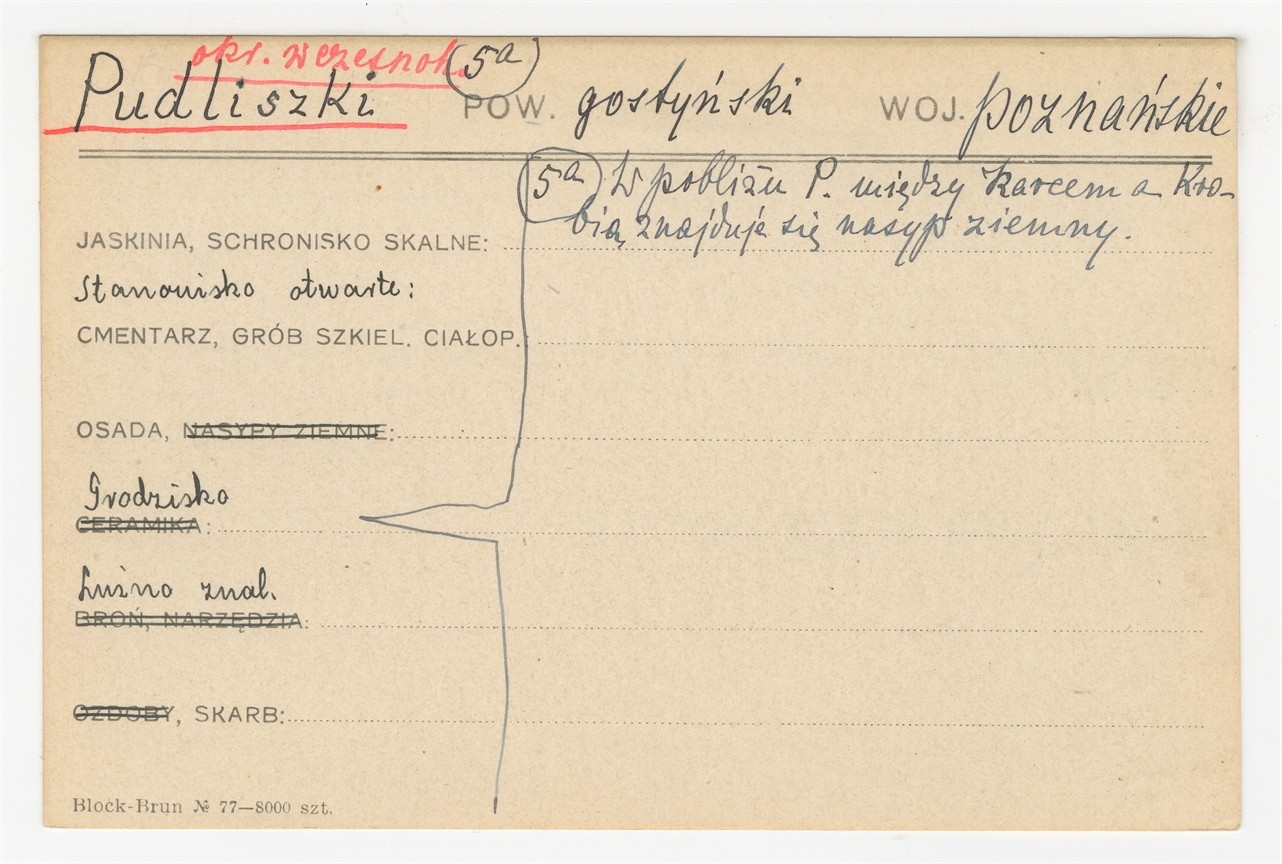 okr. wczesnoh.
Pudliszki (5a) POW. gostyński WOJ. poznańskie
(5a) W pobliżu P. między Karcem a Kro-
bią znajduje się nasyp ziemny.
JASKINIA, SCHRONISKO SKALNE:
Stanowisko otwarte:
CMENTARZ, GRÓB SZKIEL. CIAŁOP.:
OSADA, NASYPY ZIEMNE:
Grodzisko
CERAMIKA:
Luźno znal.
BROŃ, NARZĘDZIA:
OZDOBY, SKARB:
Block-Brun № 77—8000 szt.